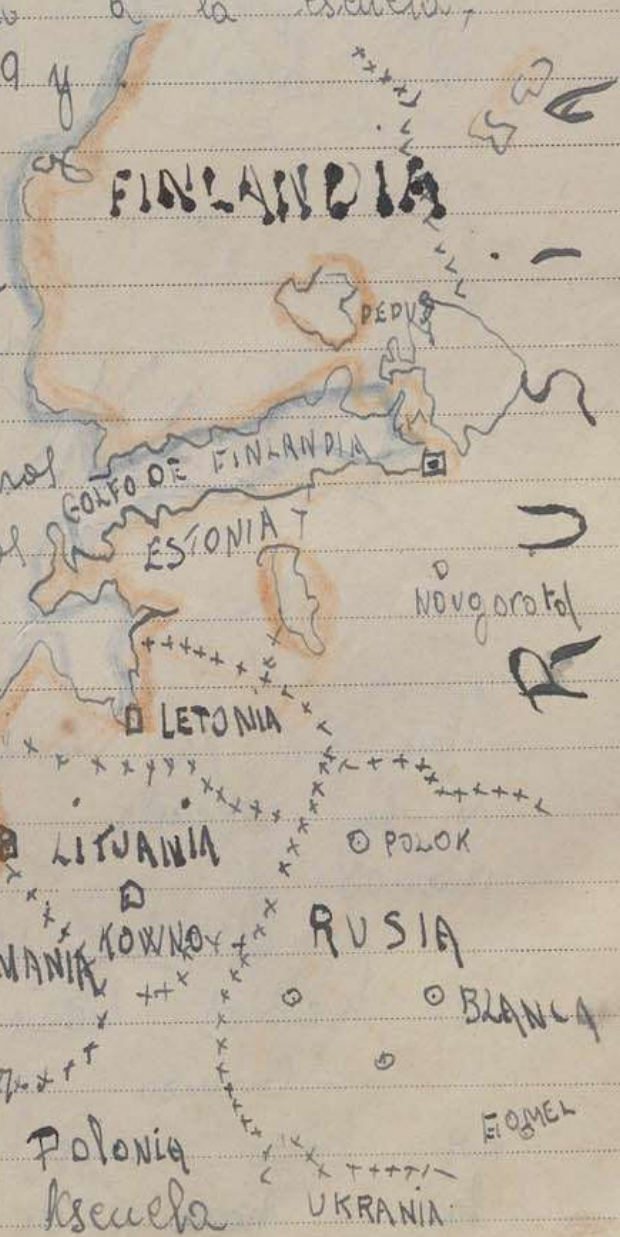 a la escuela,
9 y
FINLANDIA
DEDUS
GOLFO DE FINLANDIA
ESTONIA
Novgorotol
RUSIA
LETONIA
POLOK
LITUANIA
KOWNO
RUSIA
MANIA
BLANCA
GOMEL
Polonia
UKRANIA
Escuela